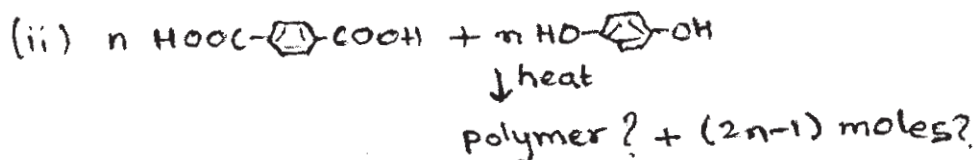 (ii) n HOOC-⌬-COOH + n HO-⌬-OH
↓ heat
polymer ? + (2n-1) moles?